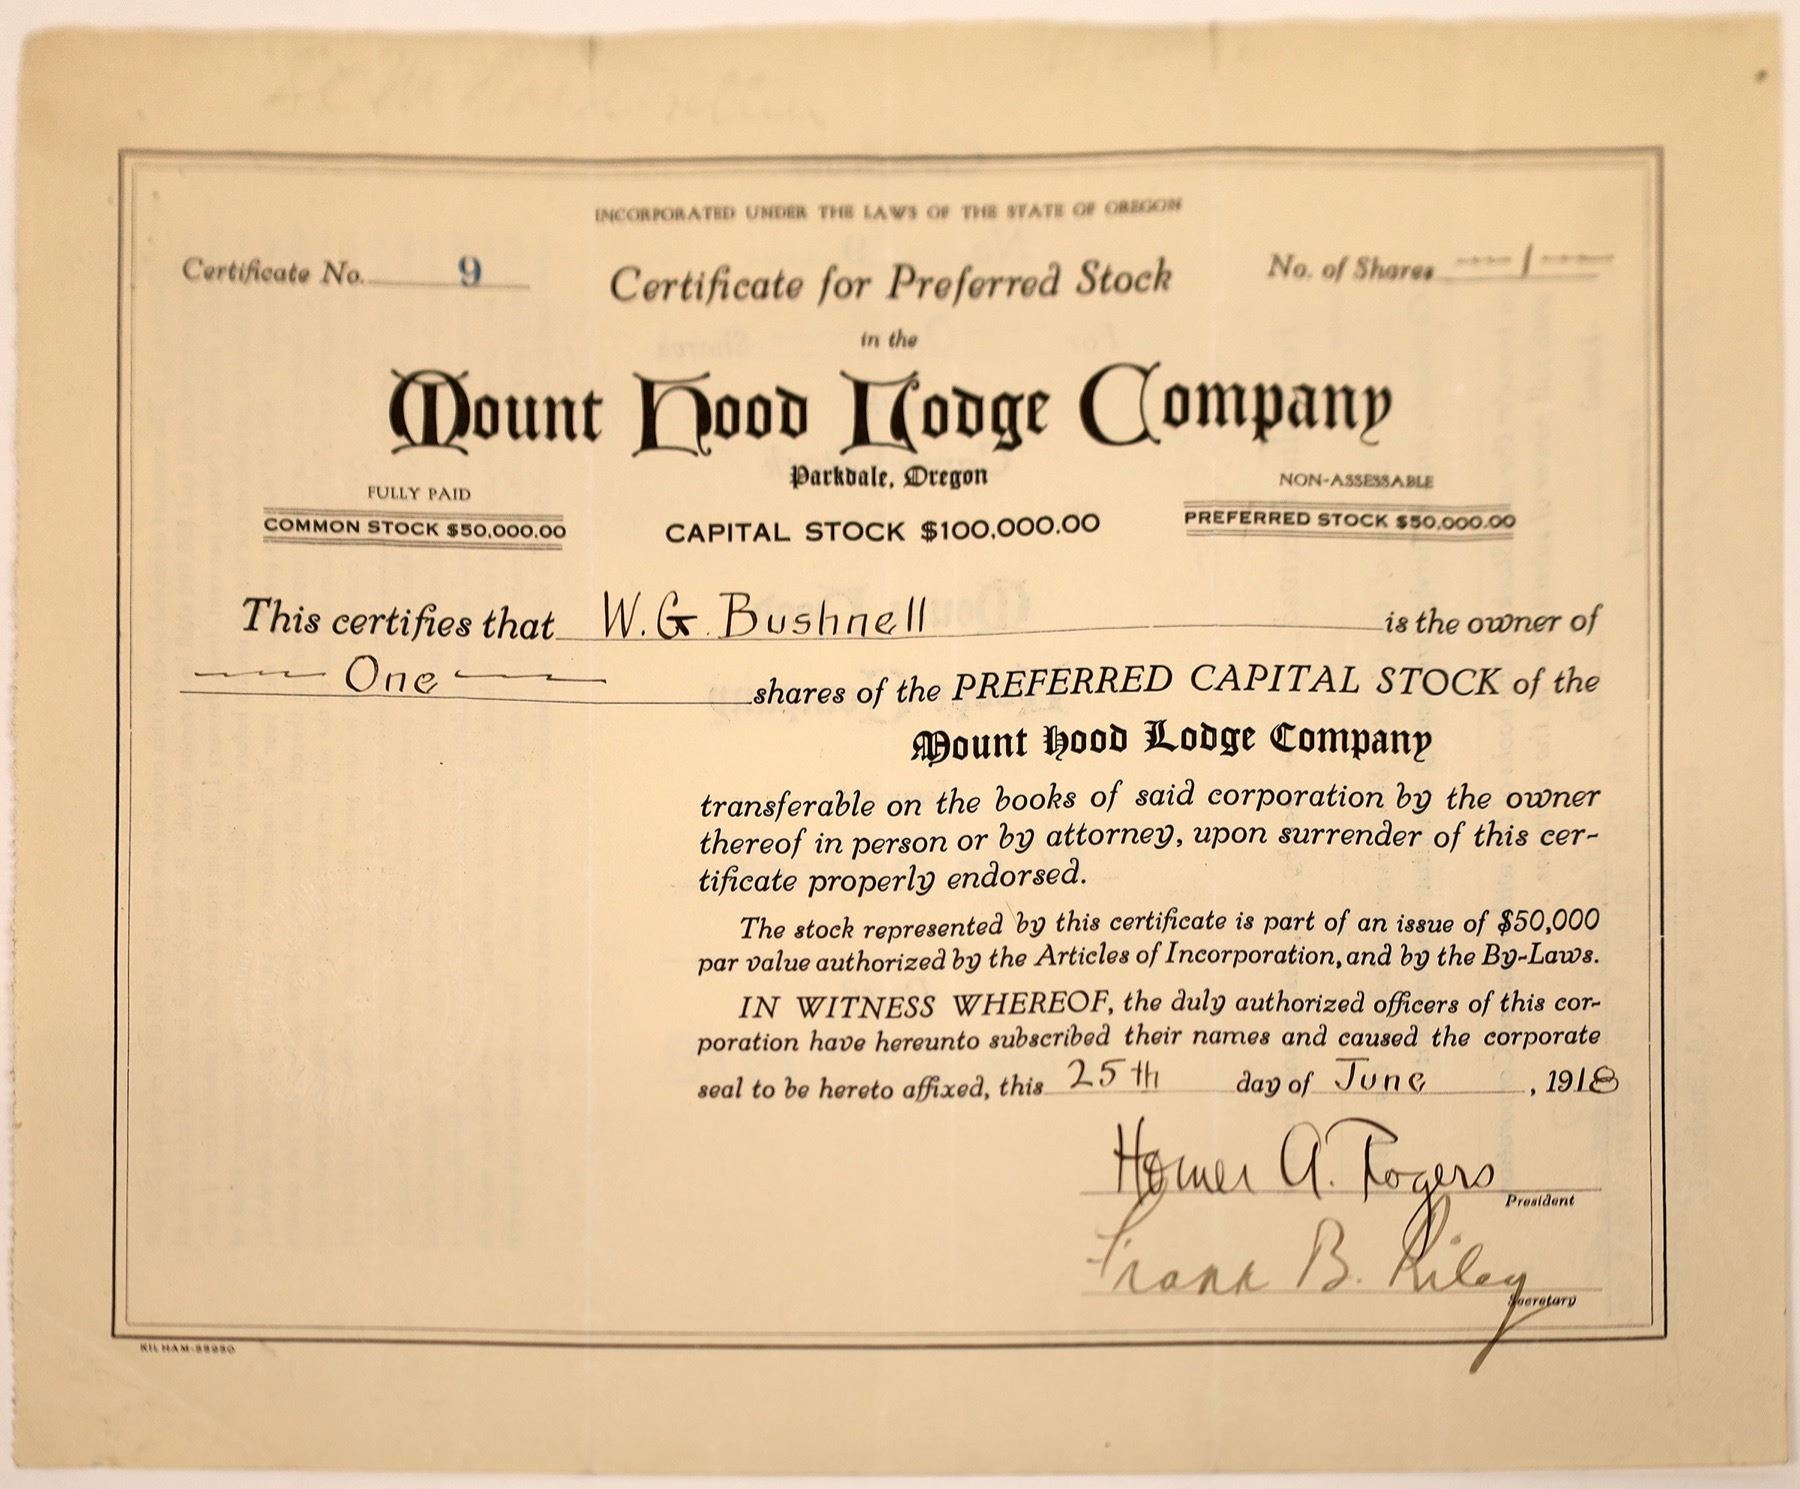 INCORPORATED UNDER THE LAWS OF THE STATE OF OREGON
Certificate No. 9
Certificate for Preferred Stock
No. of Shares 1
in the
Mount Hood Lodge Company
Parkdale, Oregon
FULLY PAID
NON-ASSESSABLE
COMMON STOCK $50,000.00
CAPITAL STOCK $100,000.00
PREFERRED STOCK $50,000.00
This certifies that W. G. Bushnell is the owner of
One shares of the PREFERRED CAPITAL STOCK of the
Mount Hood Lodge Company
transferable on the books of said corporation by the owner
thereof in person or by attorney, upon surrender of this cer-
tificate properly endorsed.
The stock represented by this certificate is part of an issue of $50,000
par value authorized by the Articles of Incorporation, and by the By-Laws.
IN WITNESS WHEREOF, the duly authorized officers of this cor-
poration have hereunto subscribed their names and caused the corporate
seal to be hereto affixed, this 25th day of June, 1918
Homer A. Rogers
President
Frank B. Riley
Secretary